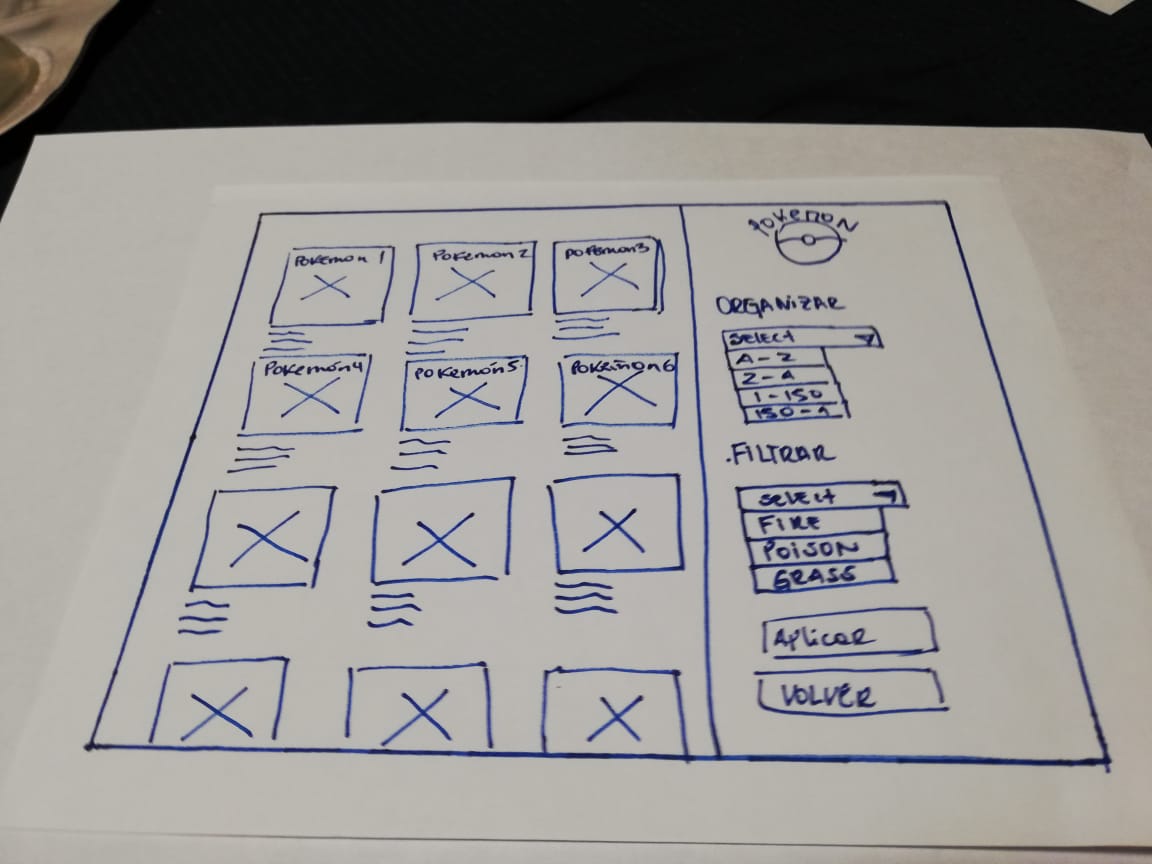 Pokemon 1
Pokemon 2
Pokemon3
Pokemon4
Pokemon5
Pokemon6
Pokemon
ORGANIZAR
Select
A-Z
Z-A
1-150
150-1
.FILTRAR
Select
FIRE
POISON
GRASS
Aplicar
VOLVER